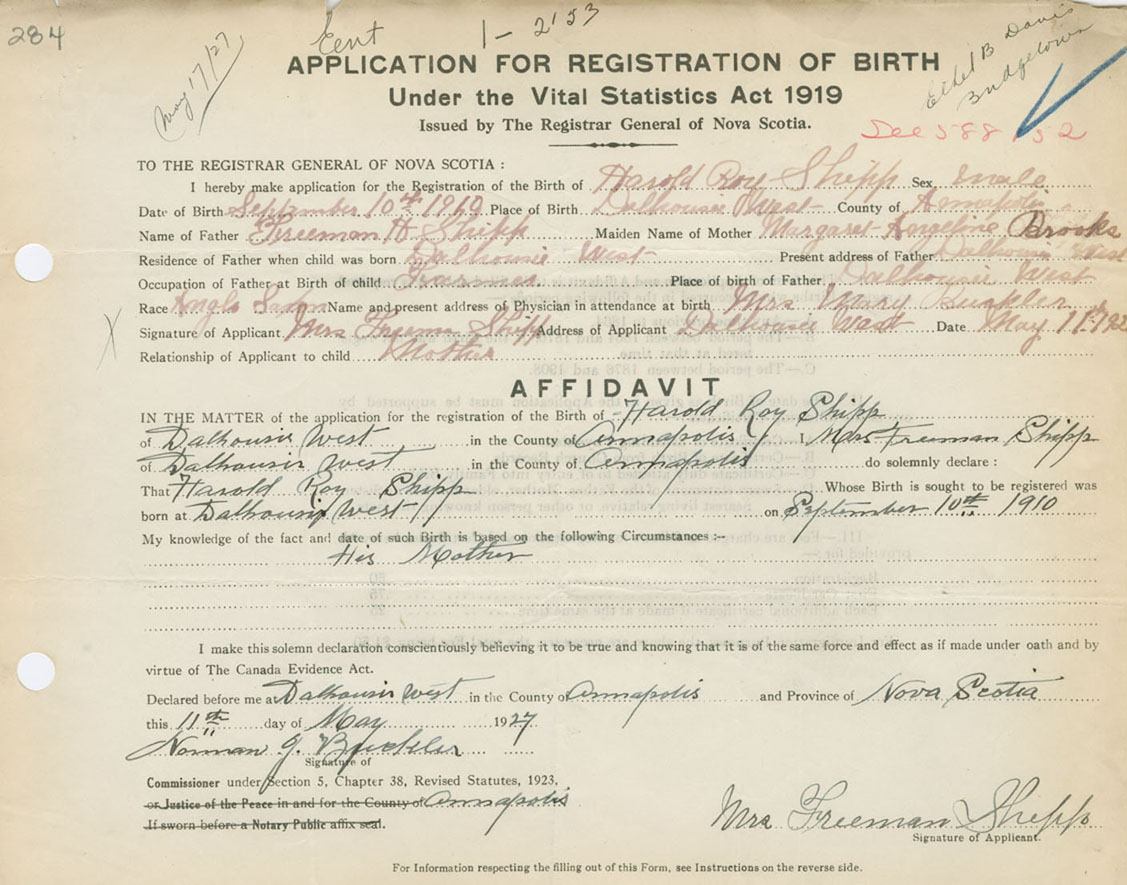 284
May 17/27
Eent
1-2153
Ethel B Davis
Bridgetown
APPLICATION FOR REGISTRATION OF BIRTH
Under the Vital Statistics Act 1919
Issued by The Registrar General of Nova Scotia.
See 588 52
TO THE REGISTRAR GENERAL OF NOVA SCOTIA :
I hereby make application for the Registration of the Birth of Harold Roy Shipp Sex male
Date of Birth September 10th 1910 Place of Birth Dalhousie West County of Annapolis
Name of Father Freeman A Shipp Maiden Name of Mother Margaret Angeline Brooks
Residence of Father when child was born Dalhousie West Present address of Father Dalhousie West
Occupation of Father at Birth of child Farmer Place of birth of Father Dalhousie West
Race Anglo Saxon Name and present address of Physician in attendance at birth Mrs Mary Buckler
X Signature of Applicant Mrs Freeman Shipp Address of Applicant Dalhousie West Date May 11th 192
Relationship of Applicant to child Mother
AFFIDAVIT
IN THE MATTER of the application for the registration of the Birth of Harold Roy Shipp
of Dalhousie West in the County of Annapolis I Mrs Freeman Shipp
of Dalhousie West in the County of Annapolis do solemnly declare :
That Harold Roy Shipp Whose Birth is sought to be registered was
born at Dalhousie West on September 10th 1910
My knowledge of the fact and date of such Birth is based on the following Circumstances :--
His Mother
I make this solemn declaration conscientiously believing it to be true and knowing that it is of the same force and effect as if made under oath and by
virtue of The Canada Evidence Act.
Declared before me at Dalhousie West in the County of Annapolis and Province of Nova Scotia
this 11th day of May 1927
Norman J. Buckler
Signature of
Commissioner under Section 5, Chapter 38, Revised Statutes, 1923,
or Justice of the Peace in and for the County of Annapolis
If sworn before a Notary Public affix seal.
Mrs Freeman Shipp
Signature of Applicant.
For Information respecting the filling out of this Form, see Instructions on the reverse side.